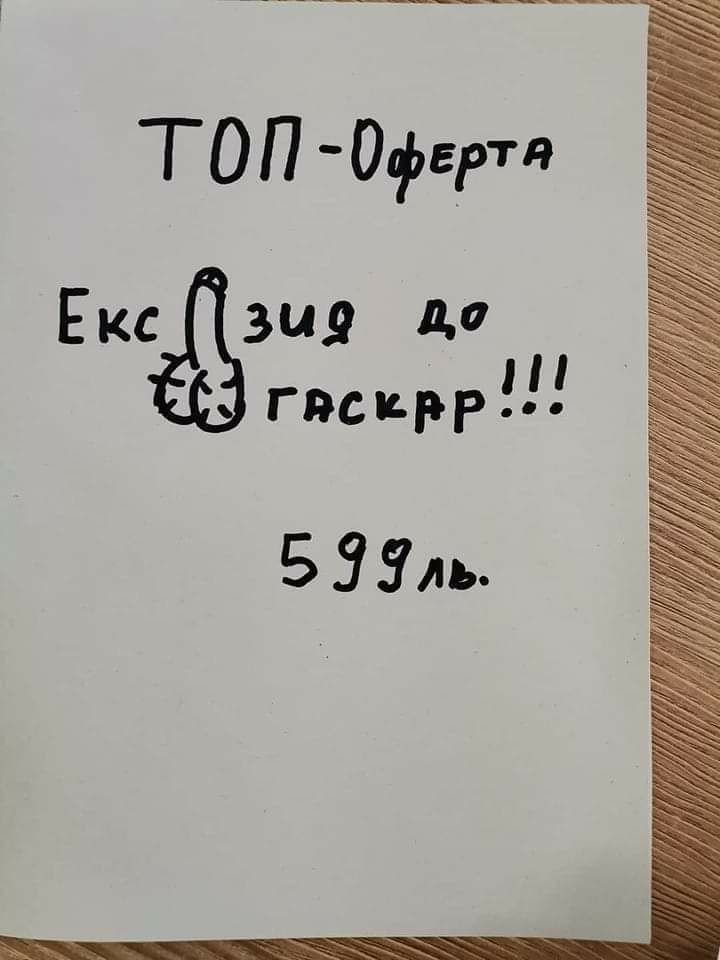 ТОП-Оферта
Екс зия до
гаскар!!!
599лв.